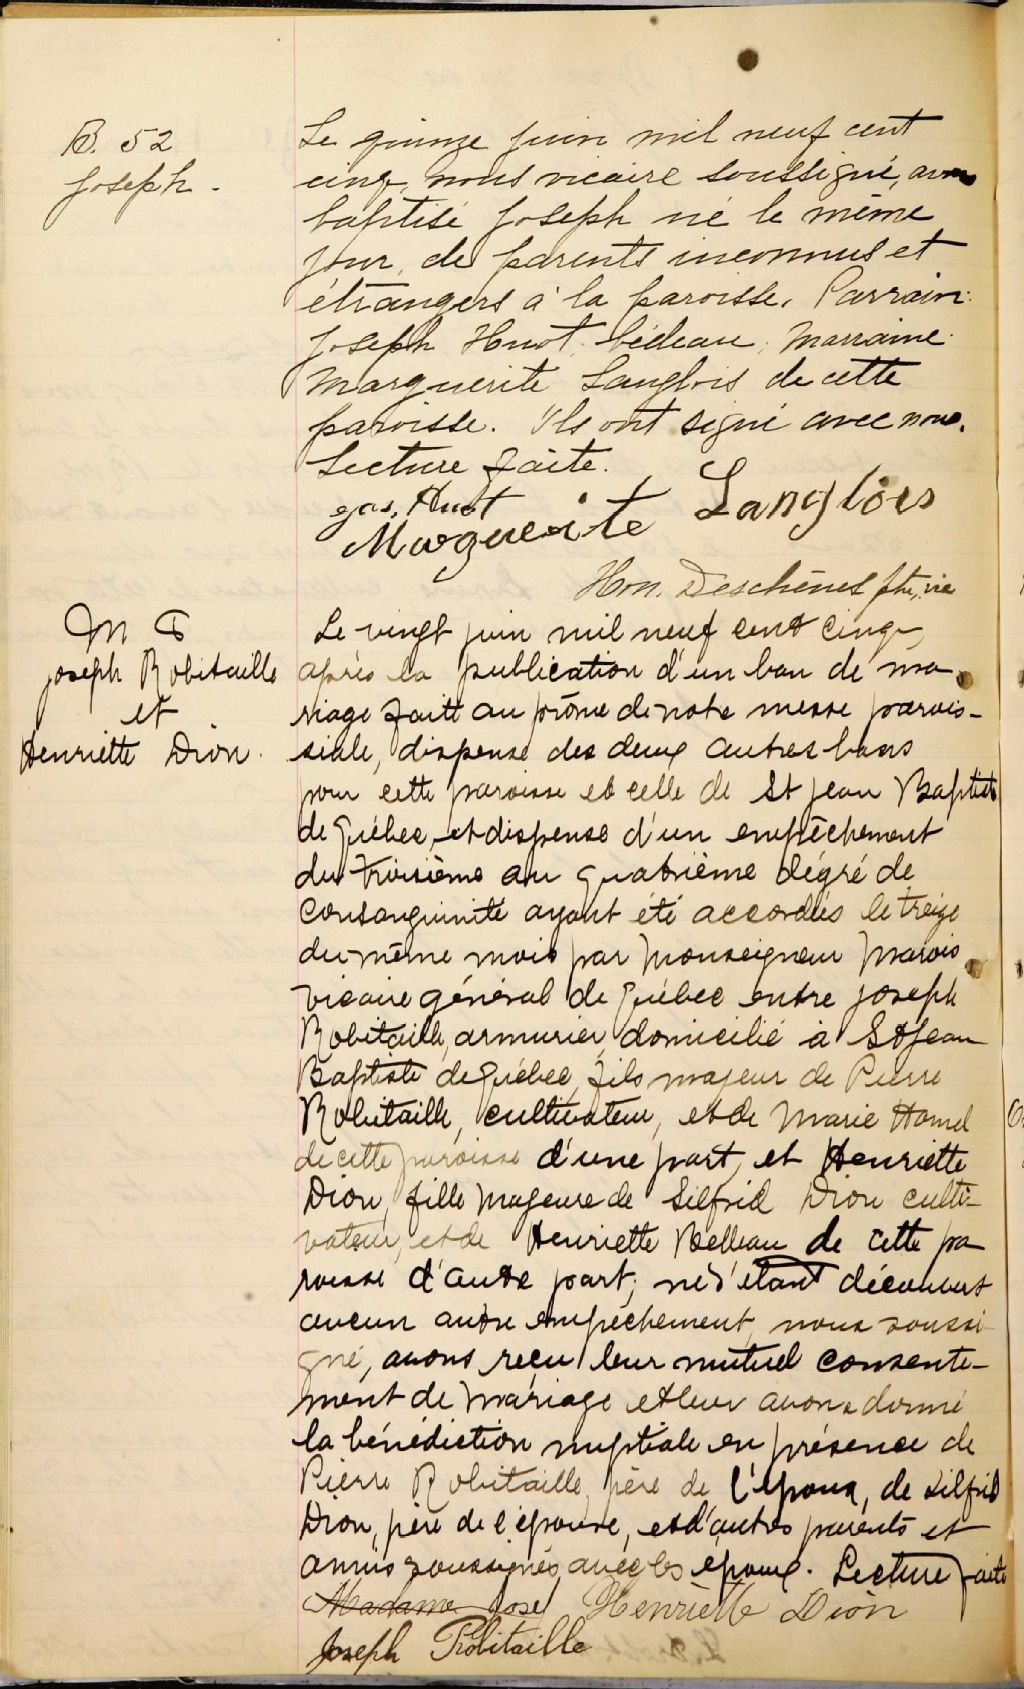 B. 52
Joseph -
Le quinze juin mil neuf cent
cinq, nous vicaire soussigné, avons
baptisé Joseph né le même
jour, de parents inconnus et
étrangers à la paroisse. Parrain:
Joseph Huot, bédeau; Marraine:
Marguerite Langlois de cette
paroisse. Ils ont signé avec nous.
Lecture faite.
Jos. Huot
Marguerite Langlois
Hon. Deschênes ptre, vic
M 
Joseph Robitaille
et
Henriette Dion.
Le vingt juin mil neuf cent cinq,
après la publication d'un ban de ma
riage faite au prône de notre messe parois-
siale, dispense des deux autres bans
pour cette paroisse et celle de St Jean Baptiste
de Québec, et dispense d'un empêchement
du troisième au quatrième dégré de
consanguinité ayant été accordés le treize
du même mois par Monseigneur Marois
vicaire général de Québec entre Joseph
Robitaille, armurier, domicilié à St Jean
Baptiste de Québec, fils majeur de Pierre
Robitaille, cultivateur, et de Marie Hamel
de cette paroisse d'une part, et Henriette
Dion, fille majeure de Silfrid Dion culti-
vateur, et de Henriette Belleau de cette pa
roisse d'autre part; ne s'étant découvert
aucun autre empêchement, nous soussi-
gné, avons reçu leur mutuel consente-
ment de mariage et leur avons donné
la bénédiction nuptiale en présence de
Pierre Robitaille, père de l'époux, de Silfrid
Dion, père de l'épouse, et d'autres parents et
amis soussignés avec les époux. Lecture faite
Madame Josep Henriette Dion
Joseph Robitaille